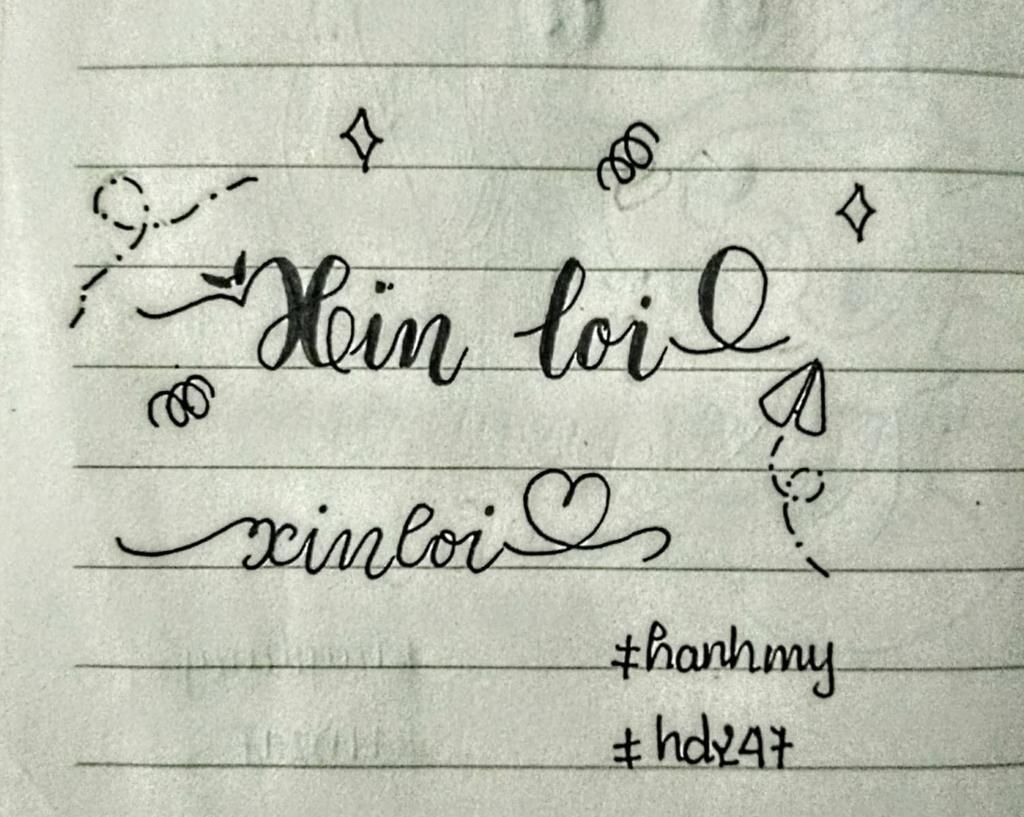 Xin loi
xinloi
#hanhmy
#hdy247